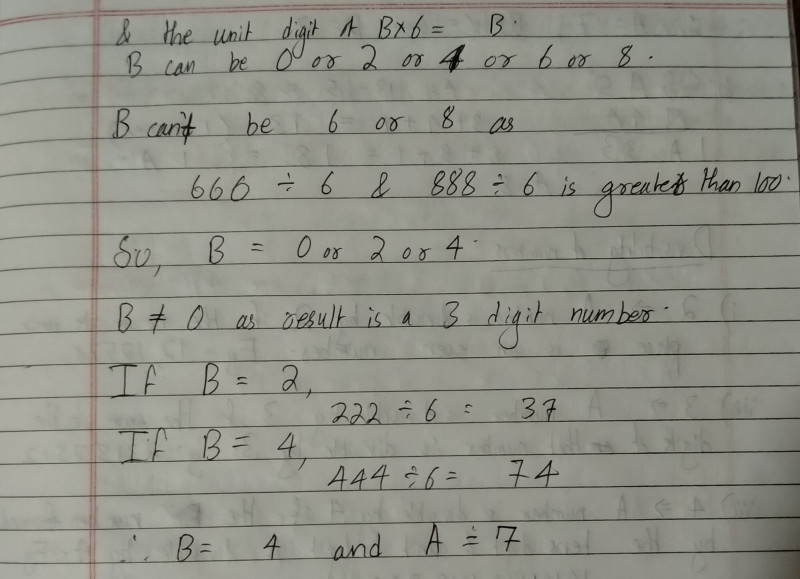 & the unit digit of B×6 = B.
B can be 0 or 2 or 4 or 6 or 8.
B can't be 6 or 8 as
666 ÷ 6 & 888 ÷ 6 is greater than 100.
So, B = 0 or 2 or 4.
B ≠ 0 as result is a 3 digit number.
If B = 2,
222 ÷ 6 = 37
If B = 4,
444 ÷ 6 = 74
∴ B = 4 and A = 7